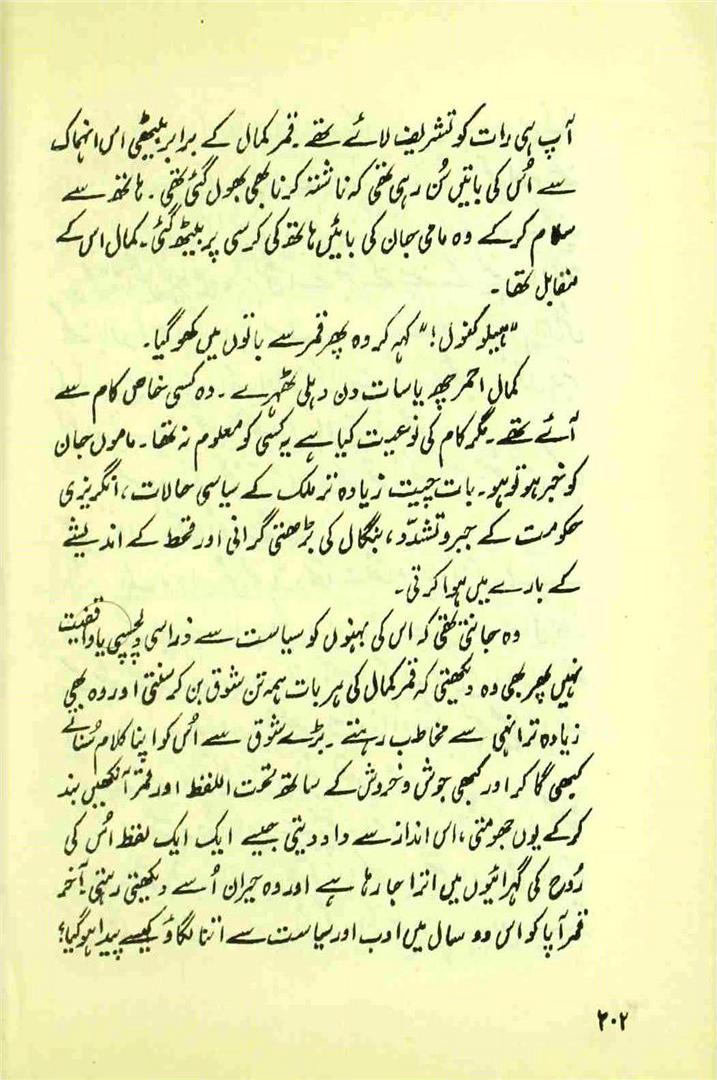 آپ ہی رات کو تشریف لائے تھے۔ قمر کمال کے برابر بیٹھی اس انہماک
سے اُس کی باتیں سُن رہی تھی کہ ناشتہ کرنا بھی بھول گئی تھی۔ ہاتھ سے
سلام کر کے وہ مامی جان کی بائیں ہاتھ کی کرسی پر بیٹھ گئی۔ کمال اس کے
متقابل تھا۔
”ہیلو کنول!“ کہہ کر وہ پھر قمر سے باتوں میں کھو گیا۔
کمال احمر چھ یا سات دن دہلی ٹھہرے۔ وہ کسی خاص کام سے
آئے تھے۔ مگر کام کی نوعیت کیا ہے یہ کسی کو معلوم نہ تھا۔ ماموں جان
کو خبر ہو تو ہو۔ بات چیت زیادہ تر ملک کے سیاسی حالات، انگریزی
حکومت کے جبر و تشدّد، بنگال کی بڑھتی گرانی اور قحط کے اندیشے
کے بارے میں ہوا کرتی۔
وہ جانتی تھی کہ اس کی بہنوں کو سیاست سے ذرا سی دلچسپی یا واقفیت
نہیں پھر بھی وہ دیکھتی کہ قمر کمال کی ہر بات ہمہ تن شوق بن کر سنتی اور وہ بھی
زیادہ تر انہی سے مخاطب رہتے۔ بڑے شوق سے اُس کو اپنا کلام سُناتے
کبھی گا کر اور کبھی جوش و خروش کے ساتھ تحت اللفظ اور قمر آنکھیں بند
کر کے یوں جھومتی، اس انداز سے داد دیتی جیسے ایک ایک لفظ اُس کی
رُوح کی گہرائیوں میں اترا جا رہا ہے اور وہ حیران اُسے دیکھتی رہتی۔ آخر
قمر آپا کو اس دو سال میں ادب اور سیاست سے اتنا لگاؤ کیسے پیدا ہو گیا؟
۲۰۲